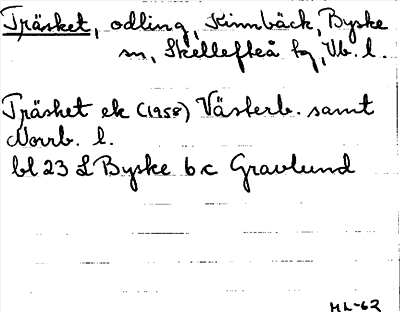 Träsket, odling, Kinnbäck, Byske
sn, Skellefteå tg, Vb. l.
Träsket ek (1958) Västerb. samt
Norrb. l.
bl 23 L Byske b c Gravlund
ML-62